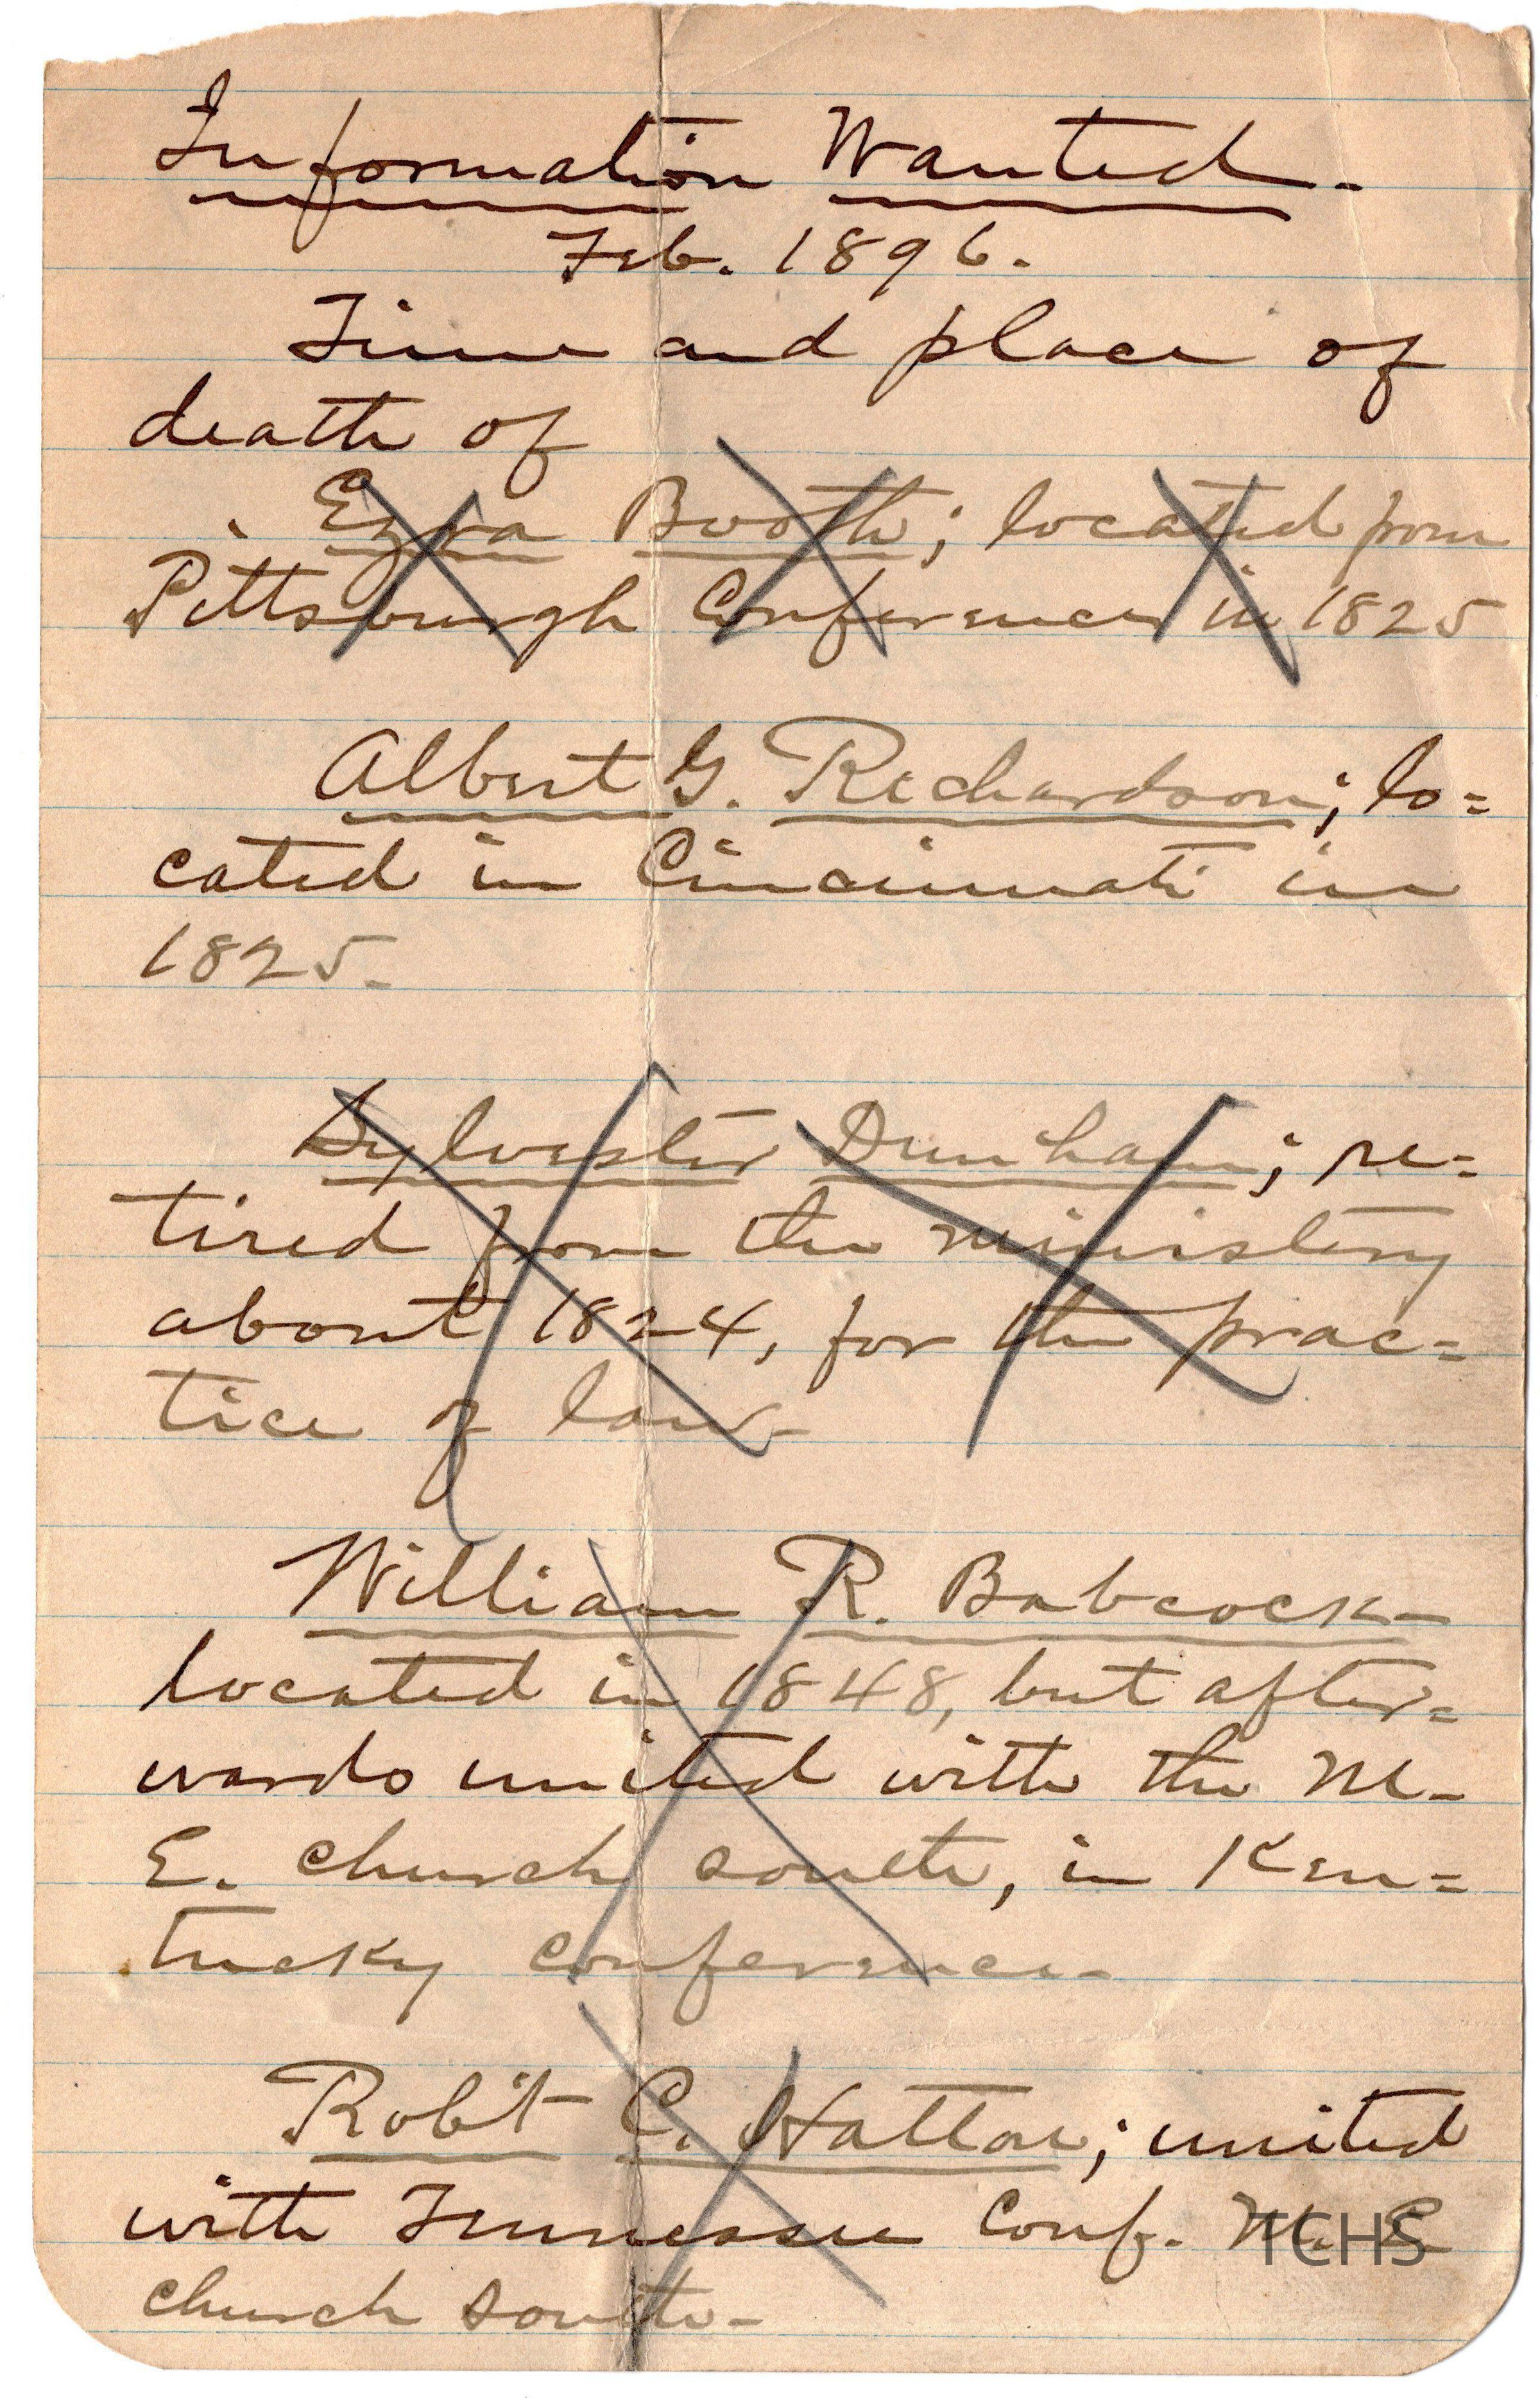 Information Wanted.
Feb. 1896.
Time and place of
death of
Ezra Booth; located from
Pittsburgh Conference in 1825
Albert G. Richardson; lo=
cated in Cincinnati in
1825.
Sylvester Dunham; re=
tired from the ministery
about 1824, for the prac=
tice of law.
William R. Babcock-
located in 1848, but after=
wards united with the M.
E. church south, in Ken=
tucky conference.
Rob't C. Hatton; united
with Tennessee Conf. M. E.
church south.
TCHS